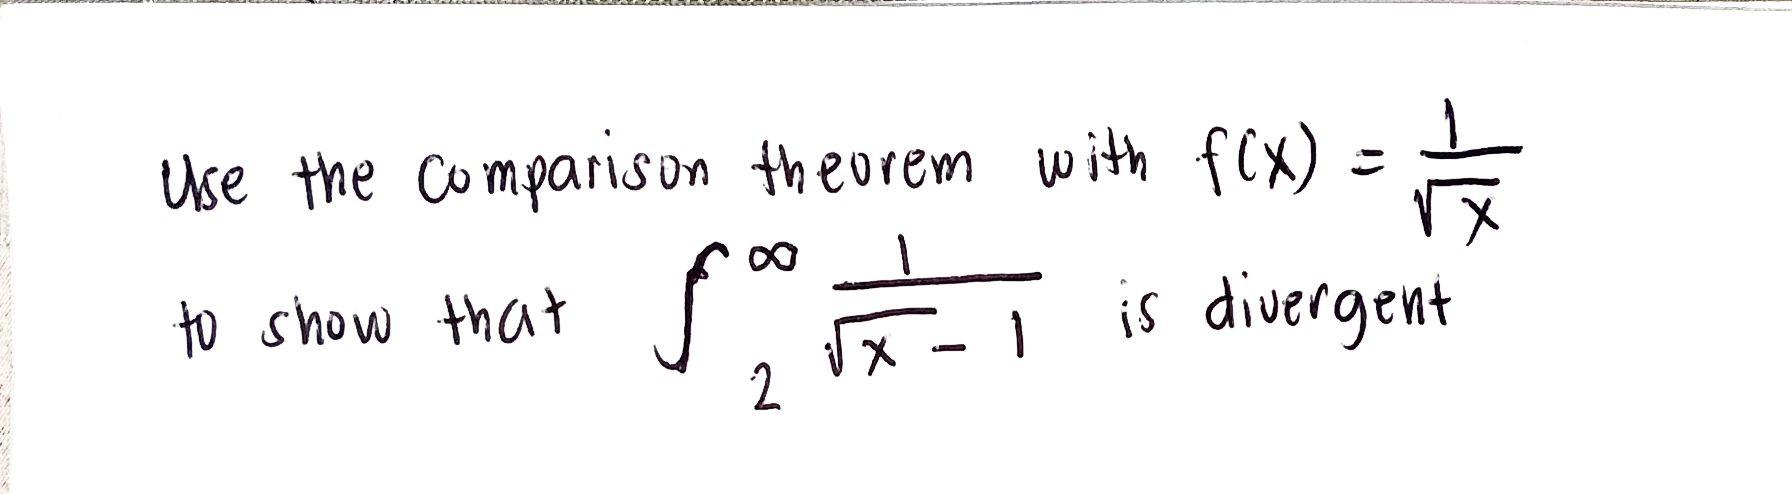 Use the comparison theorem with f(x) = 1/√x
to show that ∫₂^∞ 1/(√x - 1) is divergent